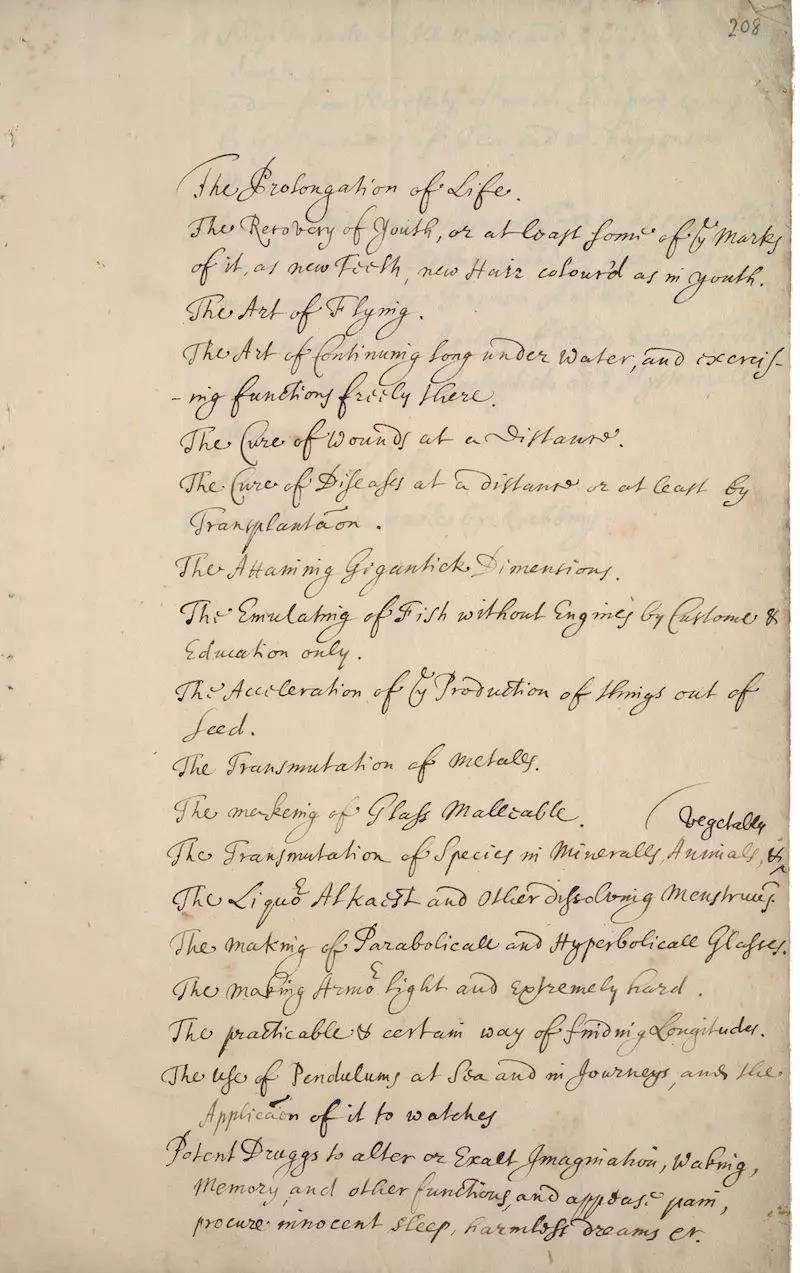 208
The Prolongation of Life.
The Recovery of Youth, or at least some of yᵉ Marks
of it, as new Teeth, new Hair colour'd as in youth.
The Art of Flying.
The Art of Continuing long under water, and exercis-
-ing functions freely there.
The Cure of Wounds at a Distance.
The Cure of Diseases at a distance or at least by
Transplantaõn.
The Attaining Gigantick Dimensions.
The Emulating of Fish without Engines by Custome &
Education only.
The Acceleration of yᵉ Production of things out of
Seed.
The Transmutation of Metalls.
The makeing of Glass Malleable.
(Vegetalls
The Transmutation of Species in Mineralls, Animals, &
The Liquoʳ Alkaest and other dissolving Menstruums.
The making of Parabolicall and Hyperbolicall Glasses.
The making Armoʳ light and extremely hard.
The practicable & certain way of finding Longitudes.
The use of Pendulums at Sea and in Journeys, and the
Applicaõn of it to watches
Potent Druggs to alter or Exalt Imagination, Waking,
Memory, and other functions, and appease pain,
procure innocent sleep, harmless dreams etc.